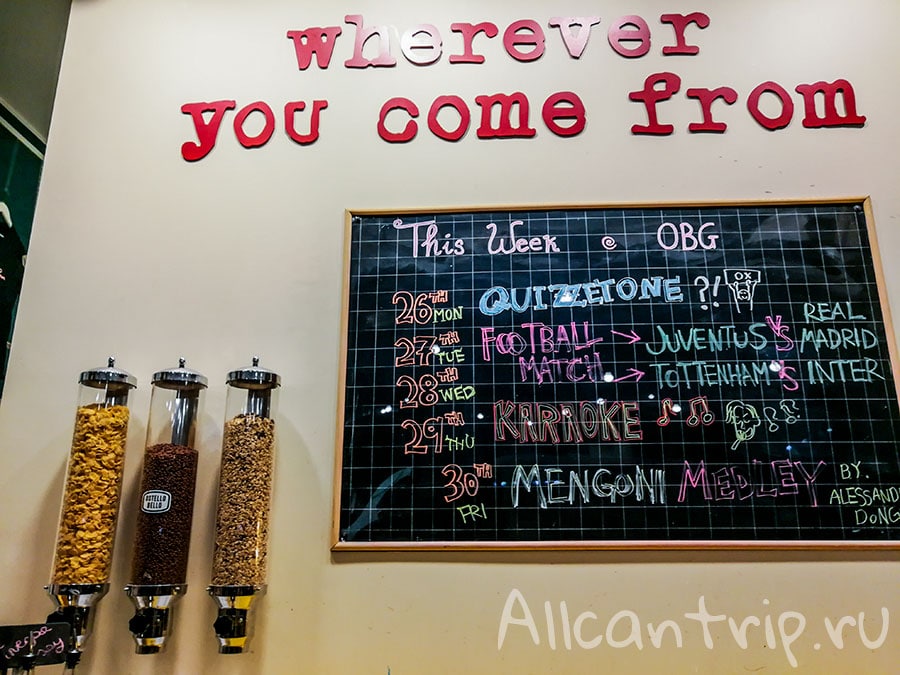 wherever
you come from
This Week @ OBG
26TH MON QUIZZETONE ?! OX
27TH TUE FOOTBALL → JUVENTUS VS REAL MADRID
28TH WED MATCH → TOTTENHAM VS INTER
29TH THU KARAOKE
30TH FRI MENGONI MEDLEY BY.
ALESSAND
DONG
OSTELLO
BELLO
Allcantrip.ru